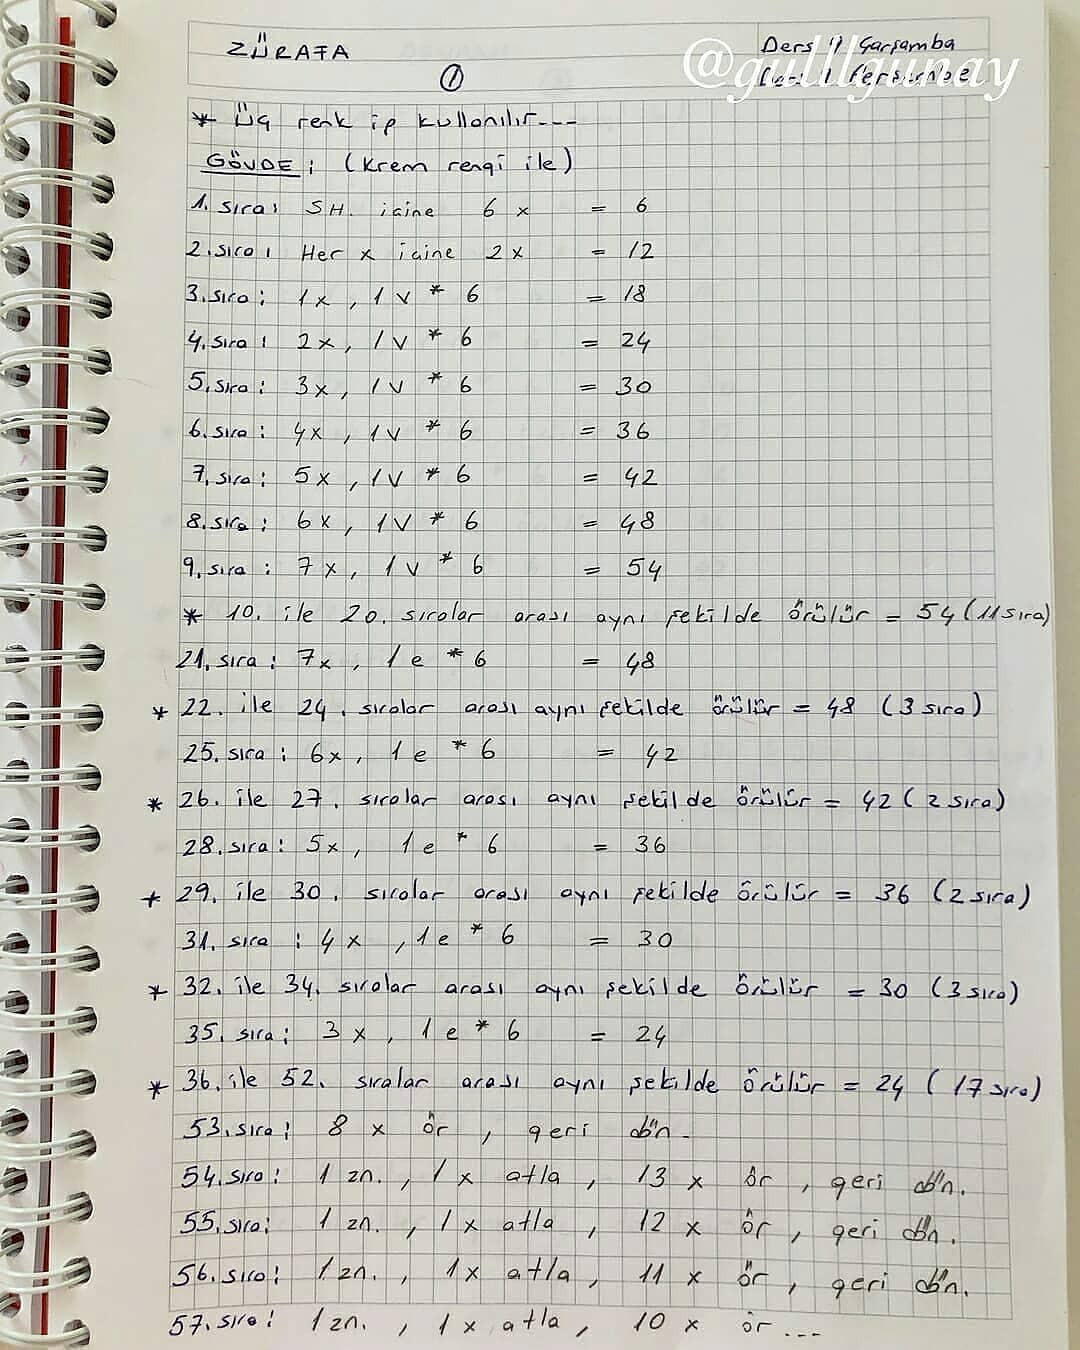 ZÜRAFA
Ders 1 Çarşamba
@gulllgunay
1
* Üç renk ip kullanılır---
GÖVDE: (Krem rengi ile)
1. sıra: SH. içine 6 x = 6
2. sıra: Her x içine 2x = 12
3. sıra: 1x, 1v * 6 = 18
4. sıra: 2x, 1v * 6 = 24
5. sıra: 3x, 1v * 6 = 30
6. sıra: 4x, 1v * 6 = 36
7. sıra: 5x, 1v * 6 = 42
8. sıra: 6x, 1v * 6 = 48
9. sıra: 7x, 1v * 6 = 54
* 10. ile 20. sıralar arası aynı şekilde örülür = 54 (11 sıra)
21. sıra: 7x, 1e * 6 = 48
* 22. ile 24. sıralar arası aynı şekilde örülür = 48 (3 sıra)
25. sıra: 6x, 1e * 6 = 42
* 26. ile 27. sıralar arası aynı şekilde örülür = 42 (2 sıra)
28. sıra: 5x, 1e * 6 = 36
* 29. ile 30. sıralar arası aynı şekilde örülür = 36 (2 sıra)
31. sıra: 4x, 1e * 6 = 30
* 32. ile 34. sıralar arası aynı şekilde örülür = 30 (3 sıra)
35. sıra: 3x, 1e * 6 = 24
* 36. ile 52. sıralar arası aynı şekilde örülür = 24 (17 sıra)
53. sıra: 8 x ör, geri dön.
54. sıra: 1 zn., 1 x atla, 13 x ör, geri dön.
55. sıra: 1 zn., 1x atla, 12 x ör, geri dön.
56. sıra: 1 zn., 1x atla, 11 x ör, geri dön.
57. sıra: 1 zn., 1 x atla, 10 x ör...